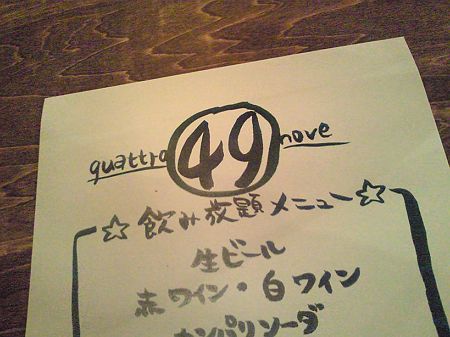 quattro 49 nove
☆飲み放題メニュー☆
生ビール
赤ワイン・白ワイン
カンパリソーダ